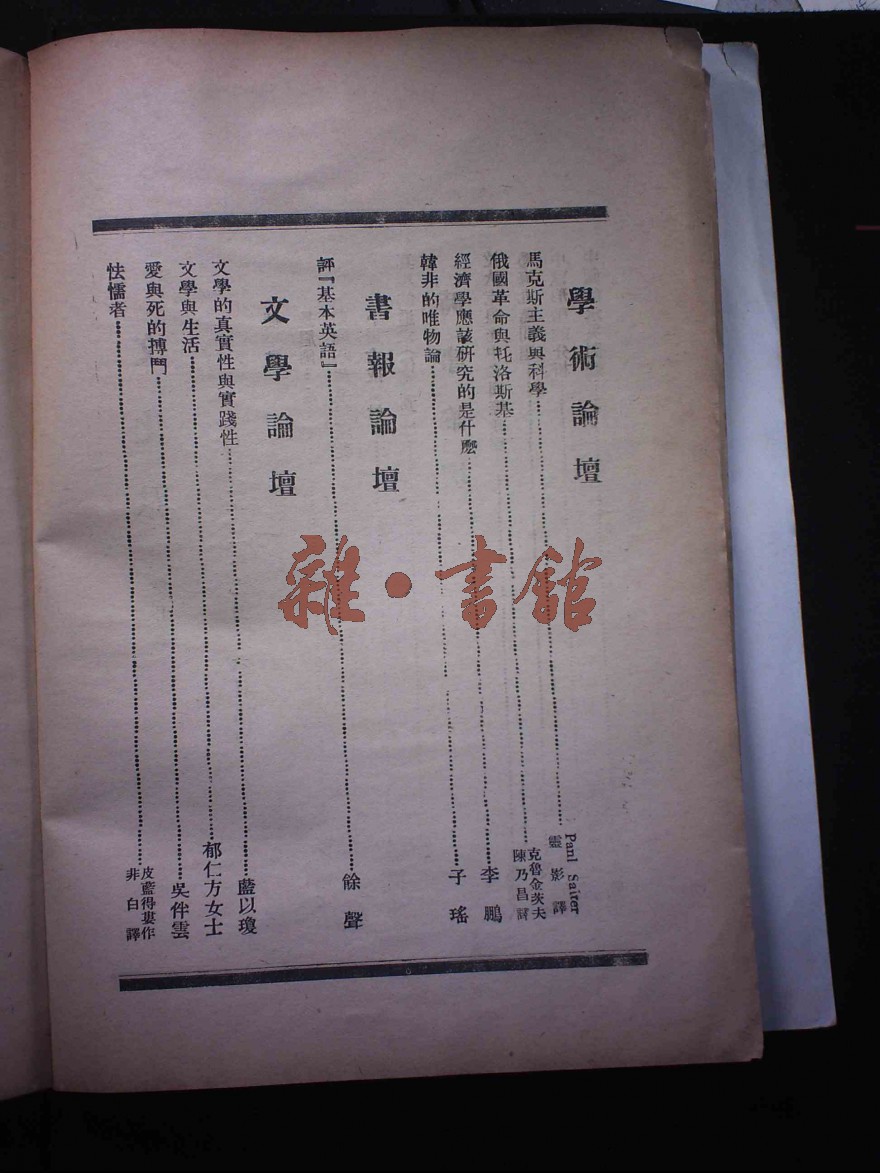 學術論壇
馬克斯主義與科學 Panl Sairer 靈影譯
俄國革命與托洛斯基 克魯金茨夫 陳乃昌譯
經濟學應該研究的是什麼 李鵬
韓非的唯物論 子瑤
書報論壇
評『基本英語』 餘聲
文學論壇
文學的真實性與實踐性 藍以瓊
文學與生活 郁仁方女士
愛與死的搏鬥 吳伴雲
怯懦者 皮藍得婁作 非白譯
雜·書館